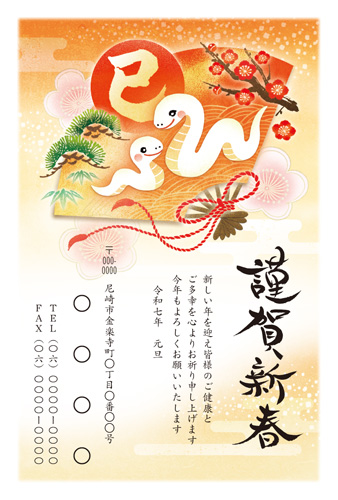 巳
謹賀新春
新しい年を迎え皆様のご健康と
ご多幸を心よりお祈り申し上げます
今年もよろしくお願いいたします
令和七年　元旦
〒000-0000
尼崎市金楽寺町〇丁目〇番〇〇号
〇〇〇〇
TEL（〇六）〇〇〇〇－〇〇〇〇
FAX（〇六）〇〇〇〇－〇〇〇〇